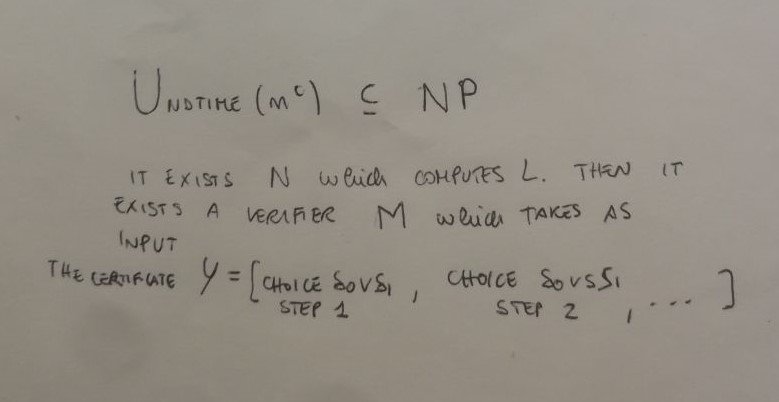 UNDTIME (n^c) ⊆ NP
IT EXISTS N which COMPUTES L. THEN IT
EXISTS A VERIFIER M which TAKES AS
INPUT
THE CERTIFICATE Y = [CHOICE δ0 VS δ1, CHOICE δ0 VS δ1
STEP 1 STEP 2 , ... ]